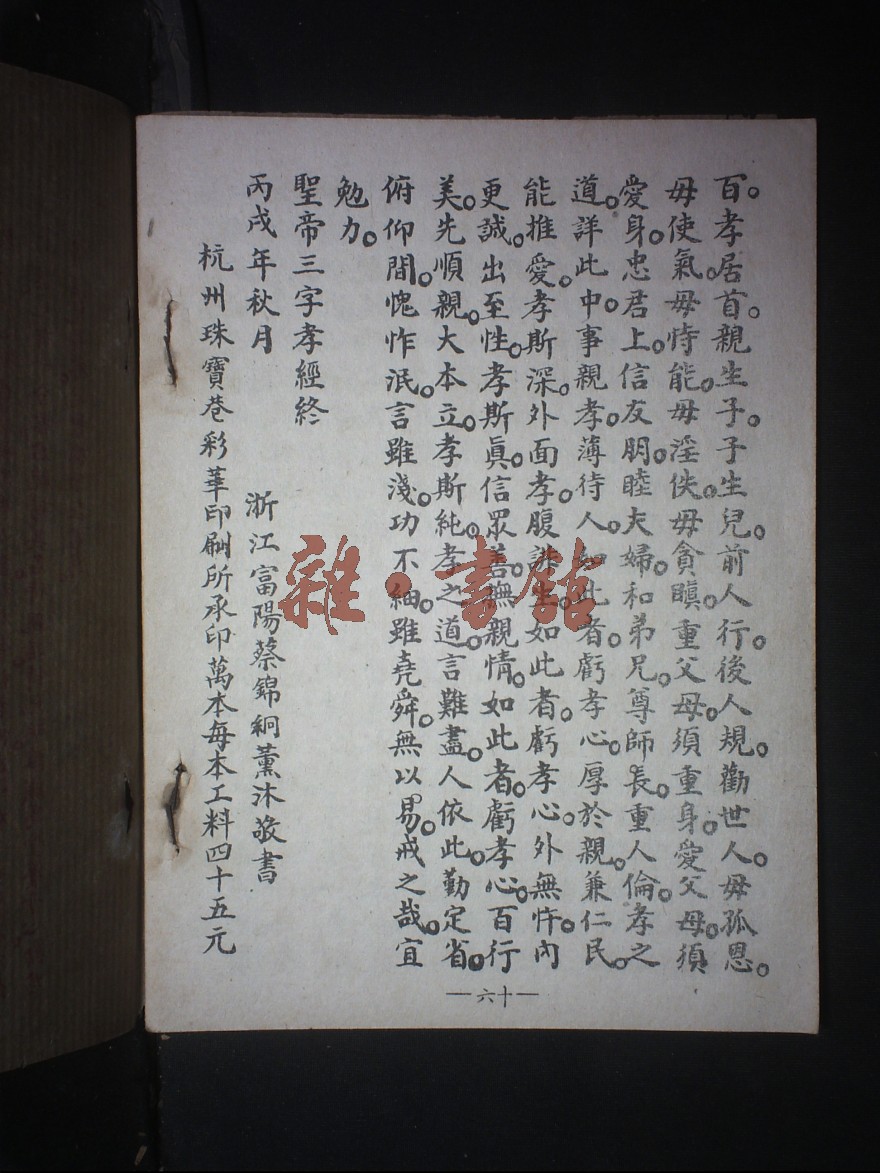 百。孝居首。親生子。子生兒。前人行。後人規。勸世人。毋孤恩。
毋使氣。毋恃能。毋淫佚。毋貪瞋。重父母。須重身。愛父母。須
愛身。忠君上。信友朋。睦夫婦。和弟兄。尊師長。重人倫。孝之
道。詳此中。事親孝。薄待人。如此者。虧孝心。厚於親。兼仁民。
能推愛。孝斯深。外面孝。腹誹生。如此者。虧孝心。外無忤。內
更誠。出至性。孝斯眞。信眾善。無親情。如此者。虧孝心。百行
美。先順親。大本立。孝斯純。孝之道。言難盡。人依此。勤定省。
俯仰間。愧怍泯。言雖淺。功不細。雖堯舜。無以易。戒之哉。宜
勉力。
聖帝三字孝經終
丙戌年秋月 浙江富陽蔡錦絅薰沐敬書
杭州珠寶巷彩華印刷所承印萬本每本工料四十五元
—六十—
雜·書館